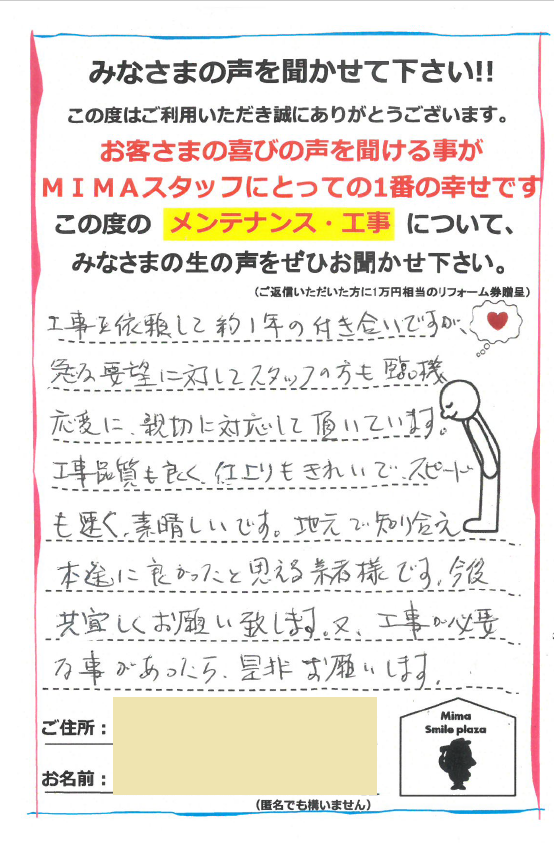 みなさまの声を聞かせて下さい!!
この度はご利用いただき誠にありがとうございます。
お客さまの喜びの声を聞ける事が
MIMAスタッフにとっての1番の幸せです
この度の メンテナンス・工事 について、
みなさまの生の声をぜひお聞かせ下さい。
(ご返信いただいた方に1万円相当のリフォーム券贈呈)
工事を依頼して約1年の付き合いですが、
急な要望に対してスタッフの方も臨機
応変に、親切に対応して頂いています。
工事品質も良く、仕上りもきれいで、スピード
も速く、素晴しいです。地元で知り合え
本途に良かったと思える業者様です。今後
共宜しくお願い致します。又、工事が必要
な事があったら、是非お願いします。
ご住所：
お名前：
(匿名でも構いません)
Mima
Smile plaza